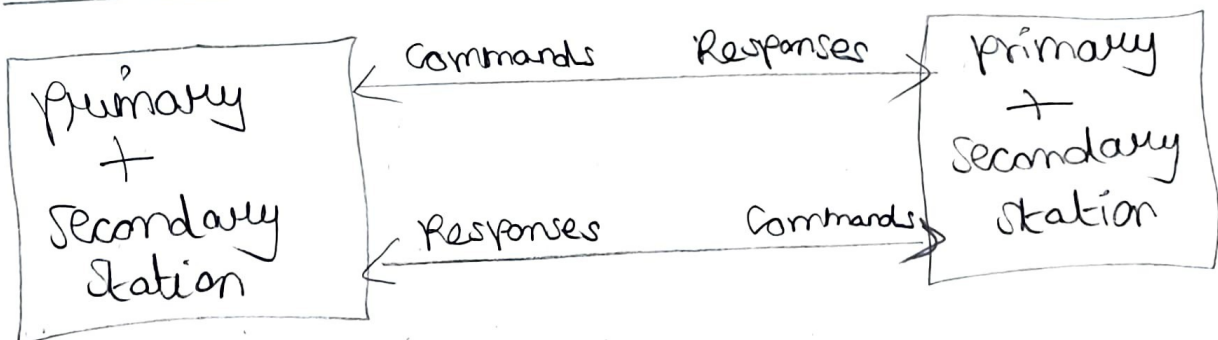 primary
+
secondary
station
Commands Responses
Responses Commands
primary
+
secondary
station